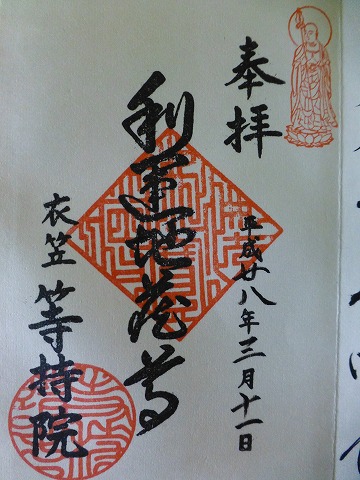 奉拝
平成廿八年三月十一日
利運地蔵尊
衣笠 等持院